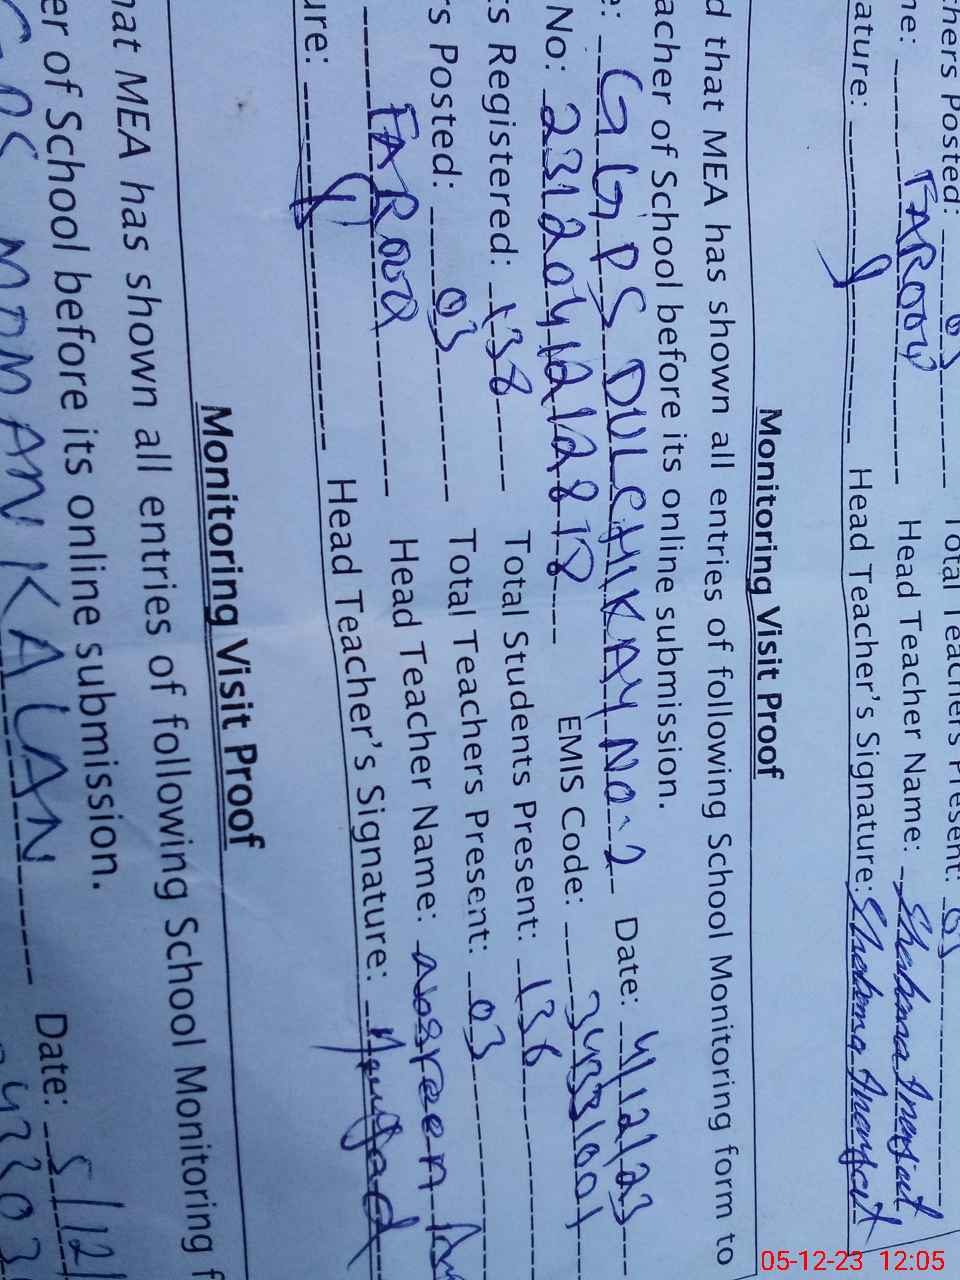 chers Posted: 03 Total Teachers Present: 03
me: FAROOQ Head Teacher Name: Shabana
ature: Head Teacher's Signature: Shabana
Monitoring Visit Proof
d that MEA has shown all entries of following School Monitoring form to
acher of School before its online submission.
e: GGPS DULCHIKAY No. 2 Date: 4/12/23
No: 231204121281 EMIS Code: 34331001
s Registered: 138 Total Students Present: 136
rs Posted: 03 Total Teachers Present: 03
FAROOQ Head Teacher Name: Nosreen
ure: Head Teacher's Signature:
Monitoring Visit Proof
hat MEA has shown all entries of following School Monitoring f
er of School before its online submission.
MOMAN KALAN Date: 5/12/
05-12-23 12:05